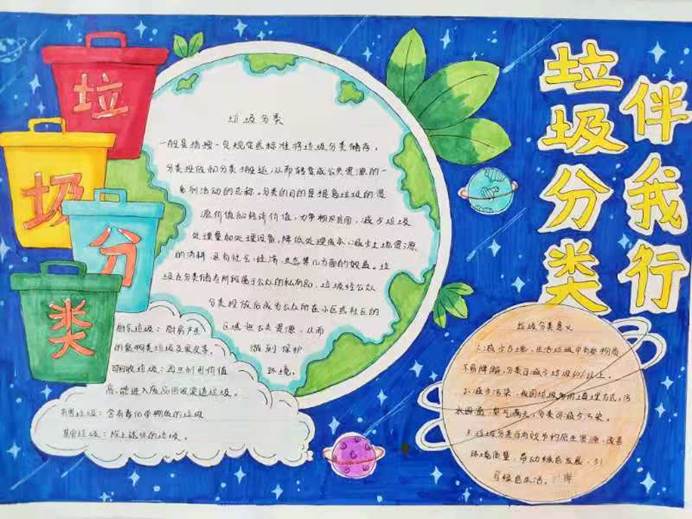 垃圾分类
伴我行
垃
圾
分
类
垃圾分类
一般是指按一定规定或标准将垃圾分类储存,
分类投放和分类搬运,从而转变成公共资源的一
系列活动的总称。分类的目的是提高垃圾的资
源价值和经济价值,力争物尽其用,减少垃圾
处理量和处理设备,降低处理成本,减少土地资源
的消耗,具有社会、经济、生态等几方面的效益。垃
圾在分类储存阶段属于公众的私有品,垃圾经公众
分类投放后成为公众所在小区或社区的
区域
资源,从而
做到保护
环境。
厨余垃圾:厨房产生
的食物类垃圾及果皮等。
可回收垃圾:再生利用价值
高,能进入废品回收渠道垃圾。
有害垃圾:含有毒化学物质的垃圾
其他垃圾:除上述外的垃圾。
垃圾分类意义
1.减少占地,生活垃圾中有些物质
不易降解,分类可减少垃圾
以上。
2.减少污染,我国垃圾
填埋方式,污
分类可减少污染。
3.垃圾分类可有效节约原生资源,改善
环境质量,带动绿色发展,引
绿色生活。